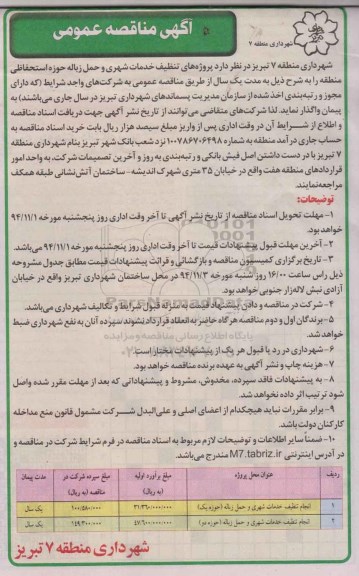 آگهی مناقصه عمومی
شهرداری منطقه ۷
شهرداری منطقه ۷ تبریز در نظر دارد پروژه‌های تنظیف خدمات شهری و حمل زباله حوزه استحفاظی
منطقه را به شرح ذیل به مدت یک سال از طریق مناقصه عمومی به شرکت‌های واجد شرایط (که دارای
مجوز و رتبه‌بندی اخذ شده از سازمان مدیریت پسماندهای شهرداری تبریز در سال جاری می‌باشند) به
پیمان واگذار نماید. لذا شرکت‌های متقاضی می‌توانند از تاریخ نشر آگهی جهت دریافت اسناد مناقصه
و اطلاع از شرایط آن در وقت اداری پس از واریز مبلغ سیصد هزار ریال بابت خرید اسناد مناقصه به
حساب جاری درآمد منطقه به شماره ۱۰۰۷۸۶۷۰۶۴۹۸ نزد شعب بانک شهر تبریز بنام شهرداری منطقه
۷ تبریز با در دست داشتن اصل فیش بانکی و رتبه‌بندی به روز و آخرین تصمیمات شرکت، به واحد امور
قراردادهای منطقه هفت واقع در خیابان ۳۵ متری شهرک اندیشه - ساختمان آتش‌نشانی طبقه همکف
مراجعه نمایند.
توضیحات:
۱- مهلت تحویل اسناد مناقصه از تاریخ نشر آگهی تا آخر وقت اداری روز پنجشنبه مورخه ۹۴/۱۱/۱
خواهد بود.
۲- آخرین مهلت قبول پیشنهادات قیمت تا آخر وقت اداری روز پنجشنبه مورخه ۹۴/۱۱/۱ می‌باشد.
۳- تاریخ برگزاری کمیسیون مناقصه و بازگشائی و قرائت پیشنهادات قیمت مطابق جدول مشروحه
ذیل راس ساعت ۱۶/۰۰ روز شنبه مورخه ۹۴/۱۱/۳ در محل ساختمان شهرداری تبریز واقع در خیابان
آزادی نبش لاله‌زار جنوبی خواهد بود.
۴- شرکت در مناقصه و دادن پیشنهاد قیمت به منزله قبول شرایط و تکالیف شهرداری می‌باشد.
۵- برندگان اول و دوم مناقصه هرگاه حاضر به انعقاد قرارداد نشوند سپرده آنان به نفع شهرداری ضبط
خواهد شد.
۶- شهرداری در رد یا قبول هر یک از پیشنهادات مختار است.
۷- هزینه چاپ و نشر آگهی به عهده برنده مناقصه خواهد بود.
۸- به پیشنهادات فاقد سپرده، مخدوش، مشروط و پیشنهاداتی که بعد از مهلت مقرر شده واصل
شود ترتیب اثر داده نخواهد شد.
۹- برابر مقررات نباید هیچکدام از اعضای اصلی و علی‌البدل شرکت مشمول قانون منع مداخله
کارکنان دولت باشد.
۱۰- ضمناً سایر اطلاعات و توضیحات لازم مربوط به اسناد مناقصه در فرم شرایط شرکت در مناقصه و
در آدرس اینترنتی M7.tabriz.ir مندرج می‌باشد.
ردیف عنوان محل پروژه مبلغ برآورد اولیه (به ریال) مبلغ سپرده شرکت در مناقصه (به ریال) مدت پیمان
۱ انجام تنظیف خدمات شهری و حمل زباله (حوزه یک) یک سال
۲ انجام تنظیف خدمات شهری و حمل زباله (حوزه دو) یک سال
شهرداری منطقه ۷ تبریز